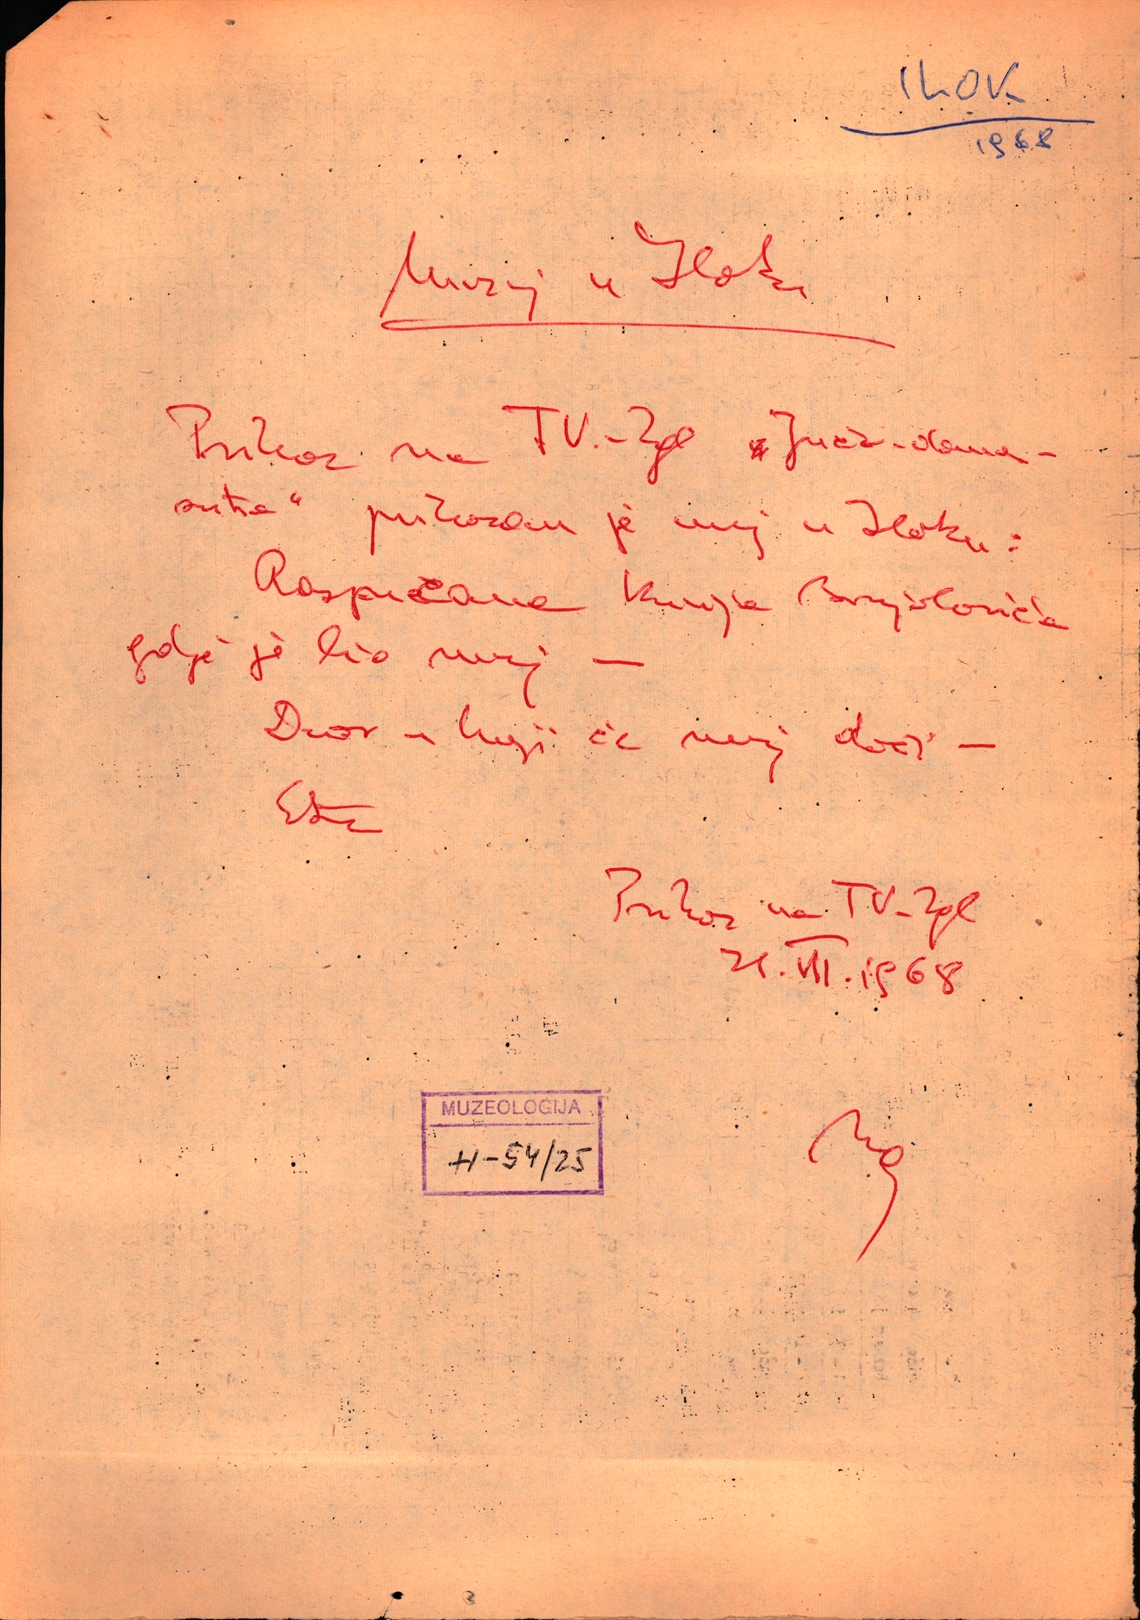 ILOK
1968
Muzej u Iloku
Prikaz na TV.-Zgb „Jučer-danas-
sutra“ prikazan je muzej u Iloku:
Raspučana kuća
gdje je bio muzej —
Dvor u koji će muzej doći —
Etc
Prikaz na TV-Zgb
21.VIII.1968
MUZEOLOGIJA
H-54/25